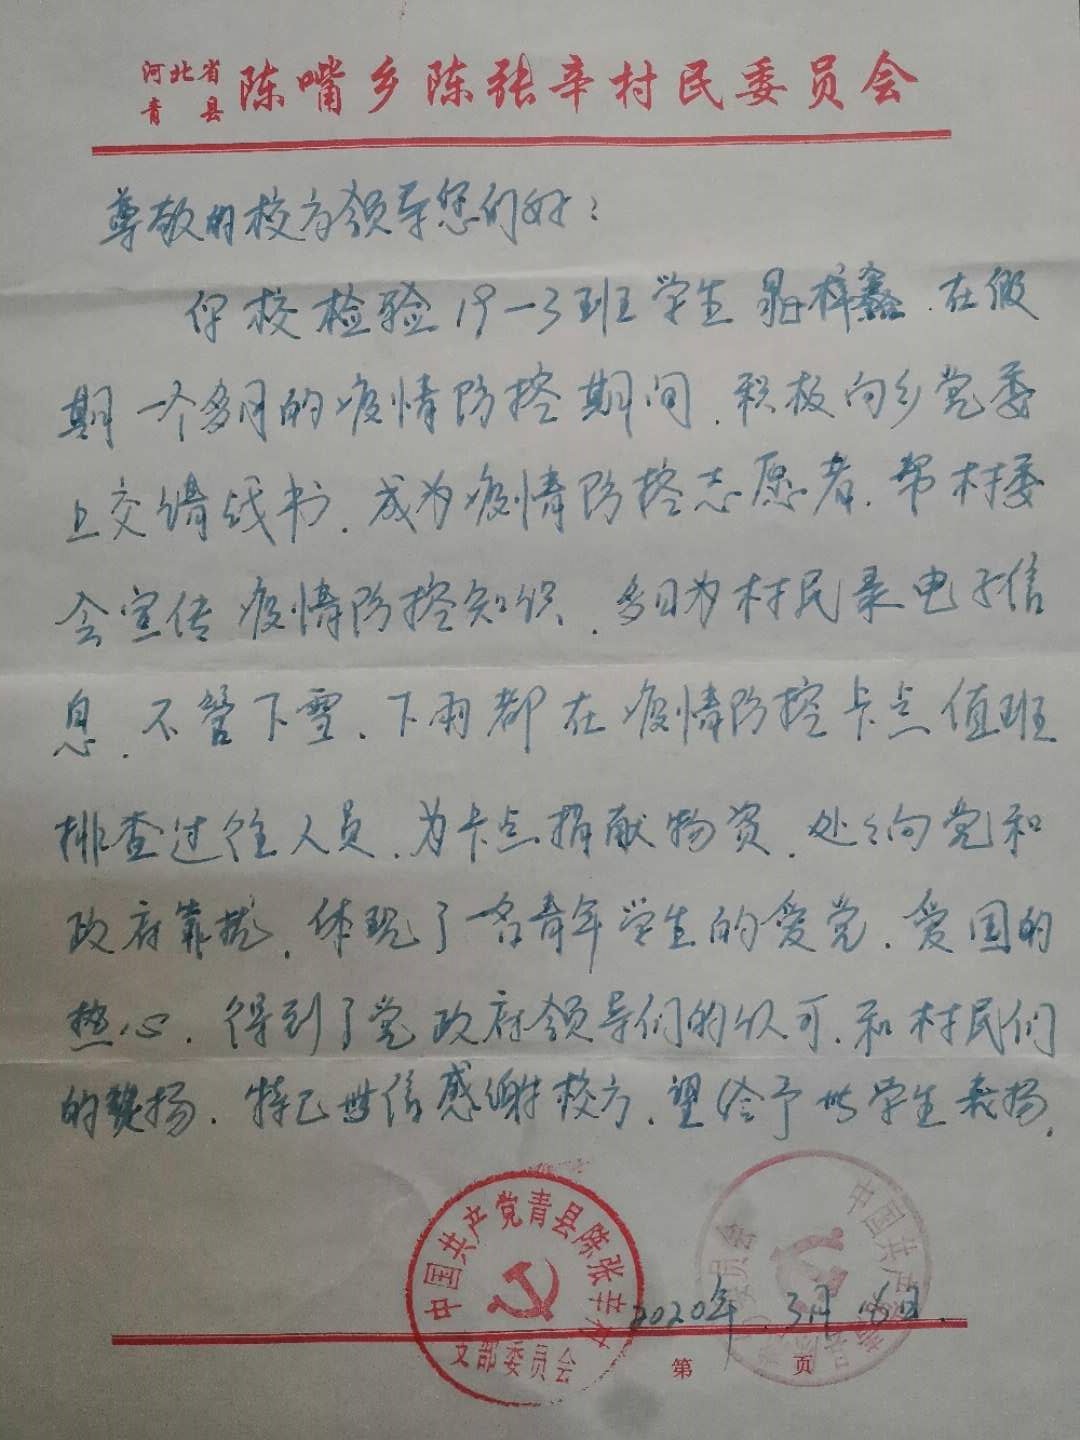 河北省
青县
陈嘴乡陈张辛村民委员会
尊敬的校方领导您们好：
你校检验19-3班学生 梓鑫.在假
期一个多月的疫情防控期间.积极向乡党委
上交请战书.成为疫情防控志愿者.帮村委
会宣传疫情防控知识.多日为村民录电子信
息.不管下雪.下雨都在疫情防控卡点值班
排查过往人员.为卡点捐献物资.处处向党和
政府靠拢.体现了 青年学生的爱党.爱国的
热心.得到了党政府领导们的认可.和村民们
的 扬.特已此信感谢校方.望给予此学生表扬.
中国共产党青县陈张辛村
支部委员会
2020年.3月 日.
中国共产党
第 页